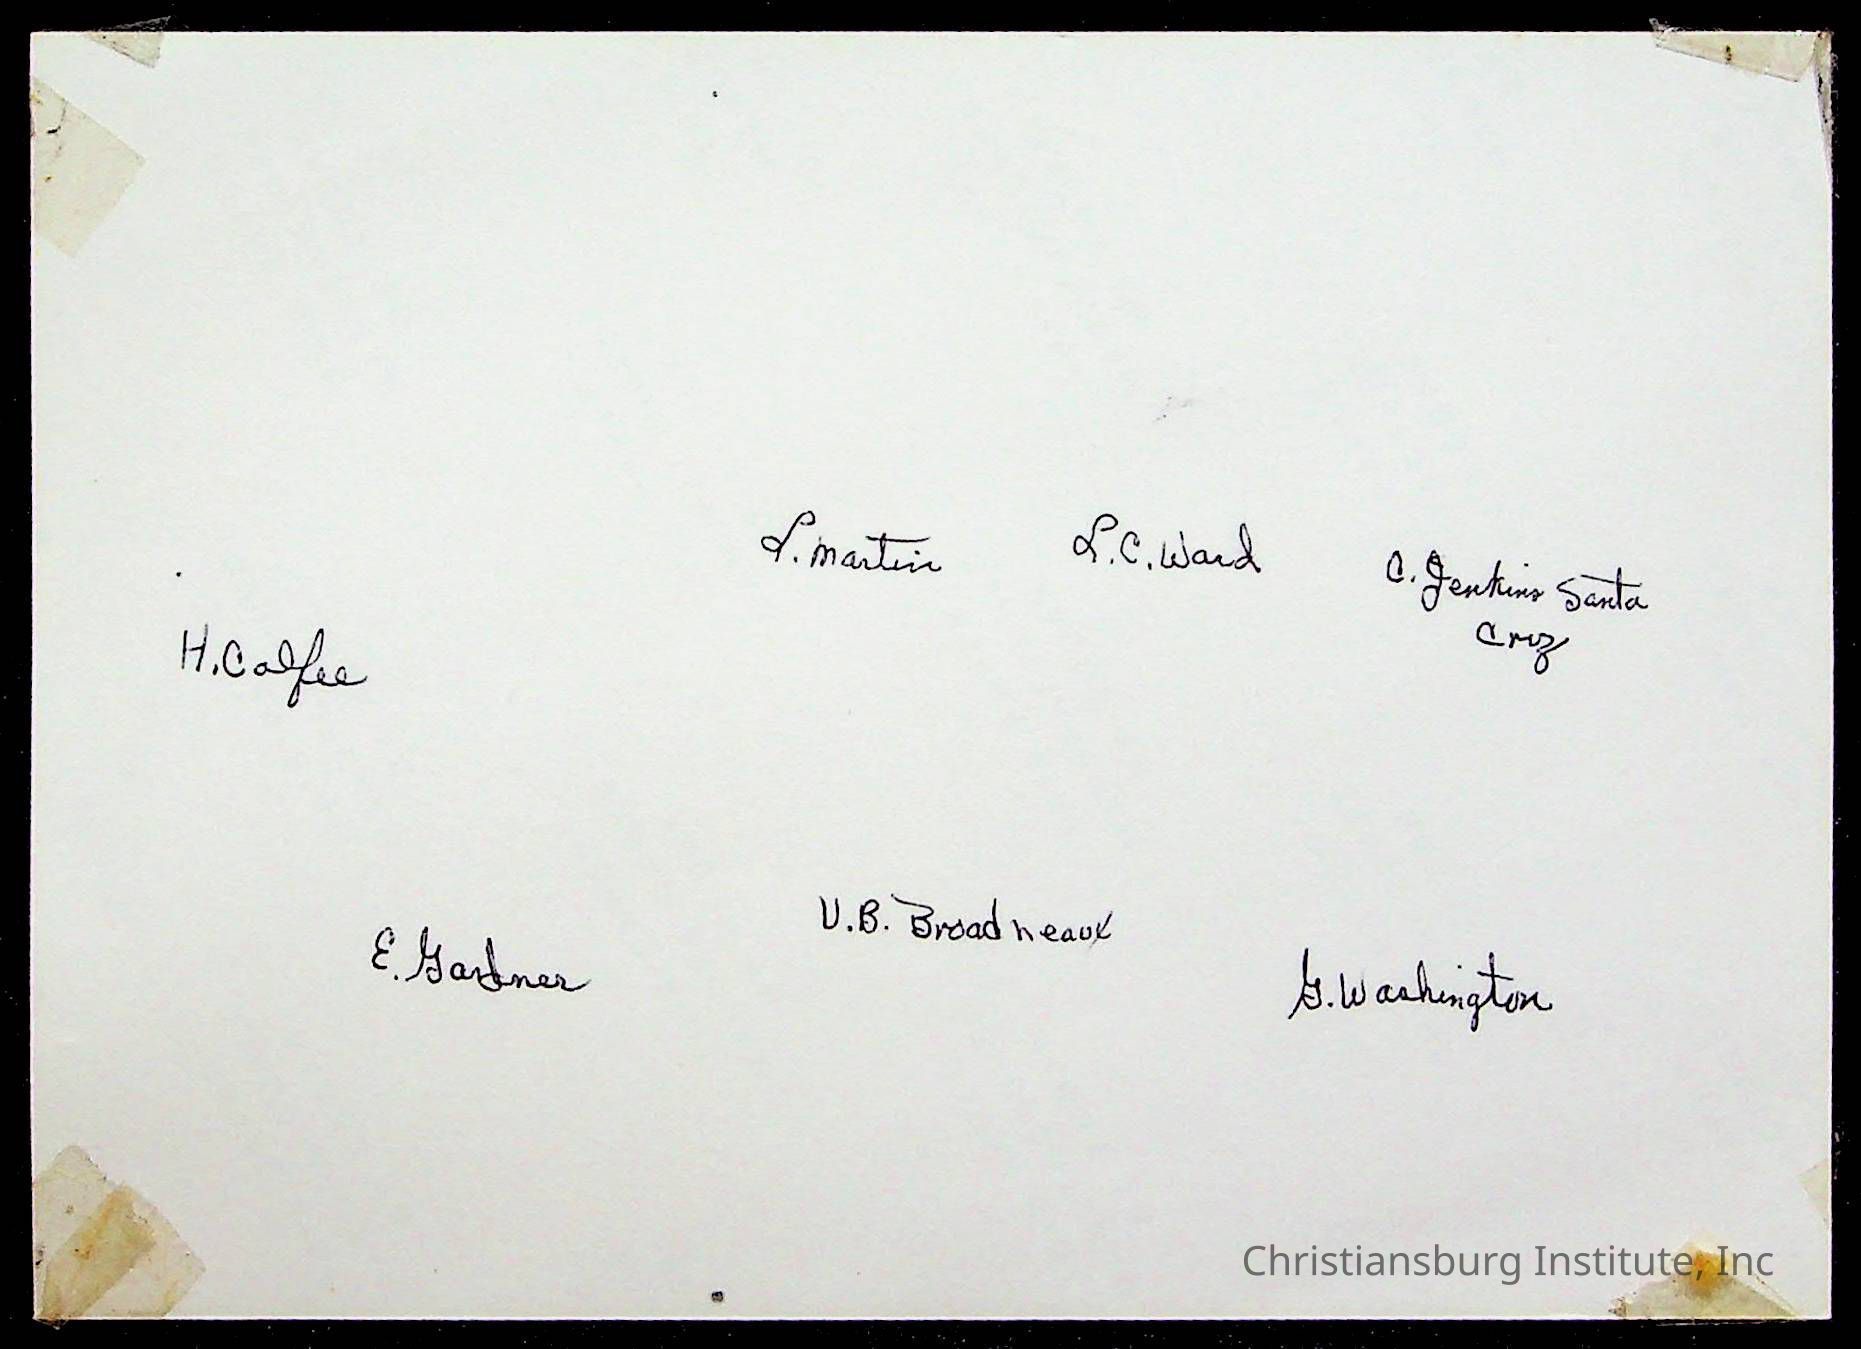 L. Martin
L.C. Ward
C. Jenkins Santa
Cruz
H. Calfee
E. Gardner
V.B. Broadneaux
G. Washington
Christiansburg Institute, Inc